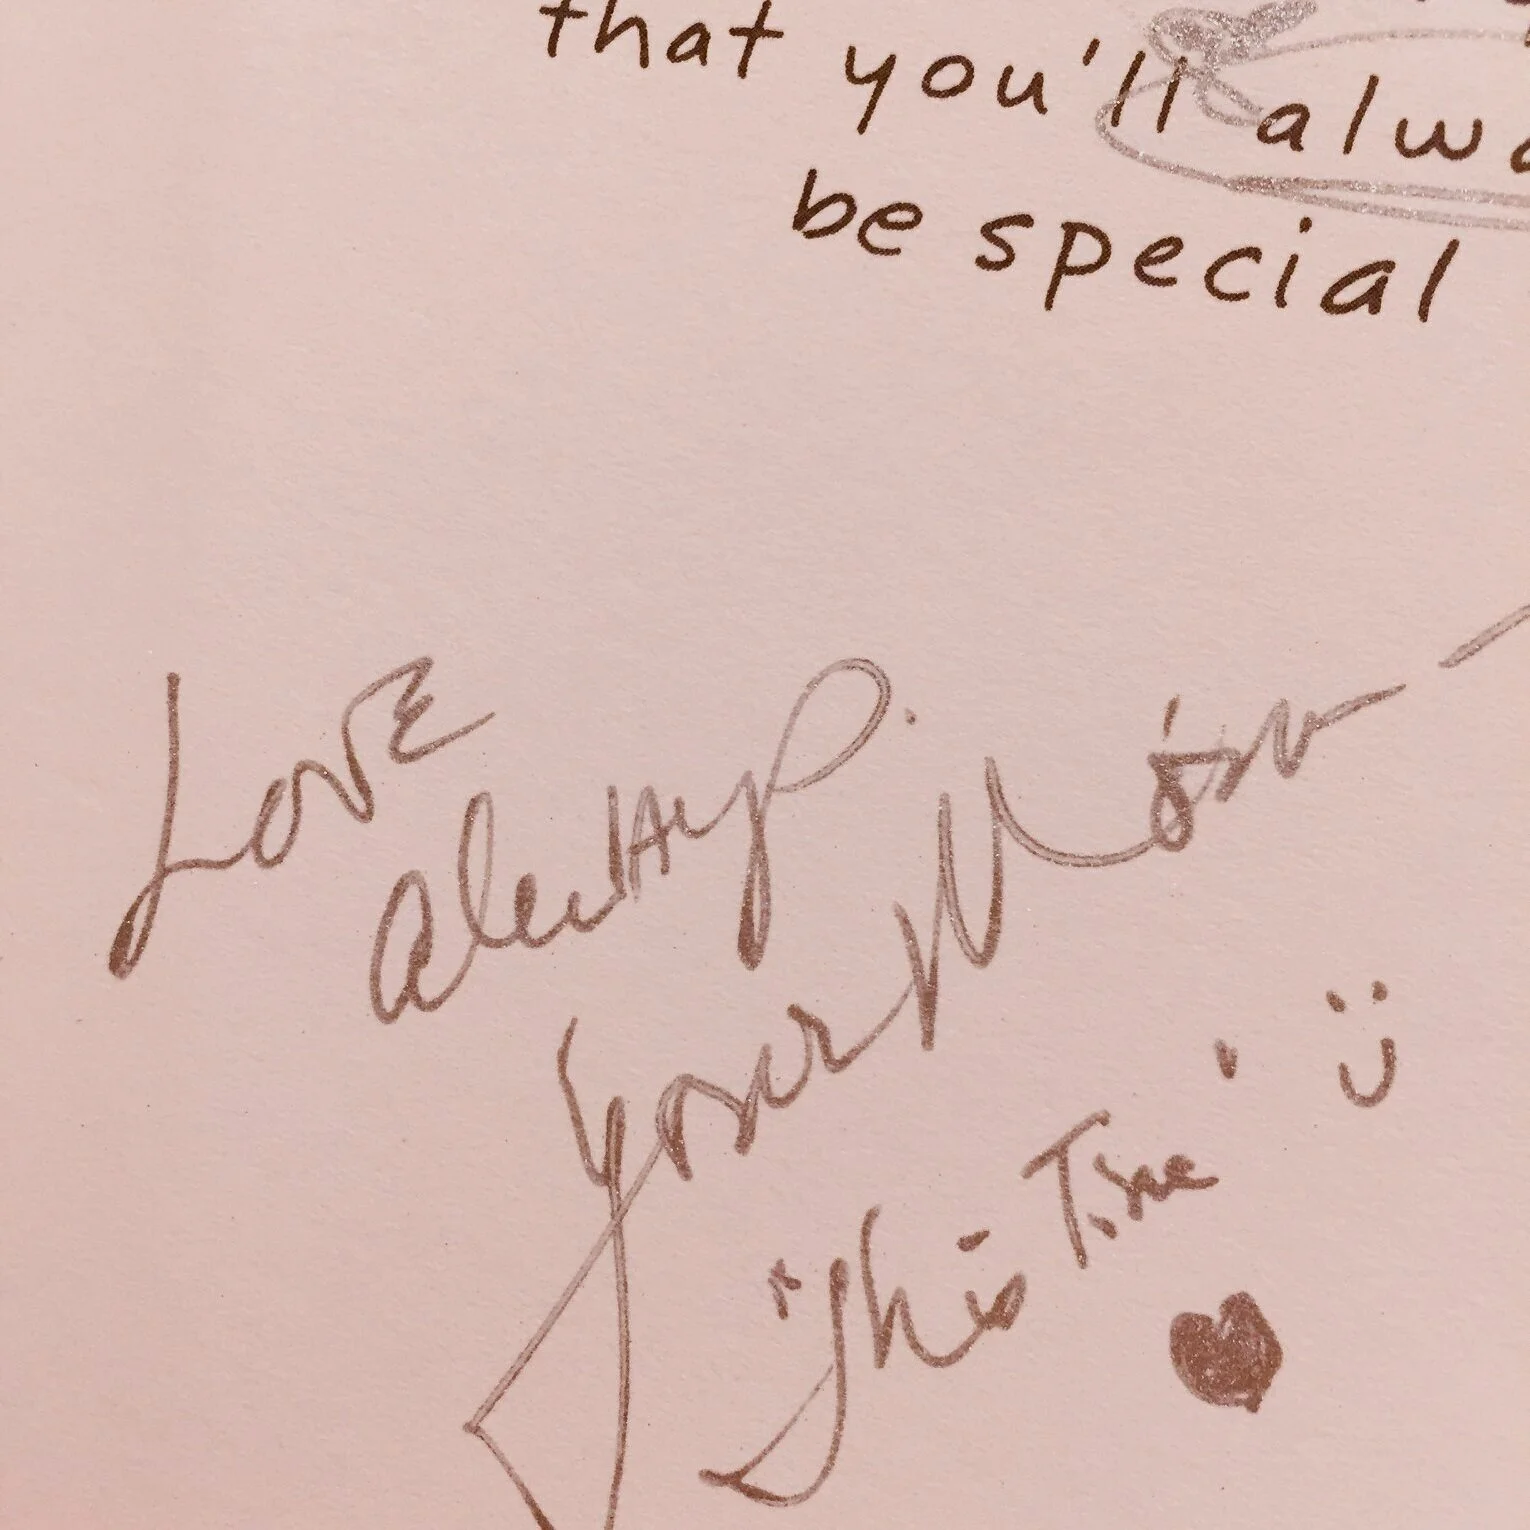 that you'll alwa
be special
Love
always
Your Mom -
"This Time" :)